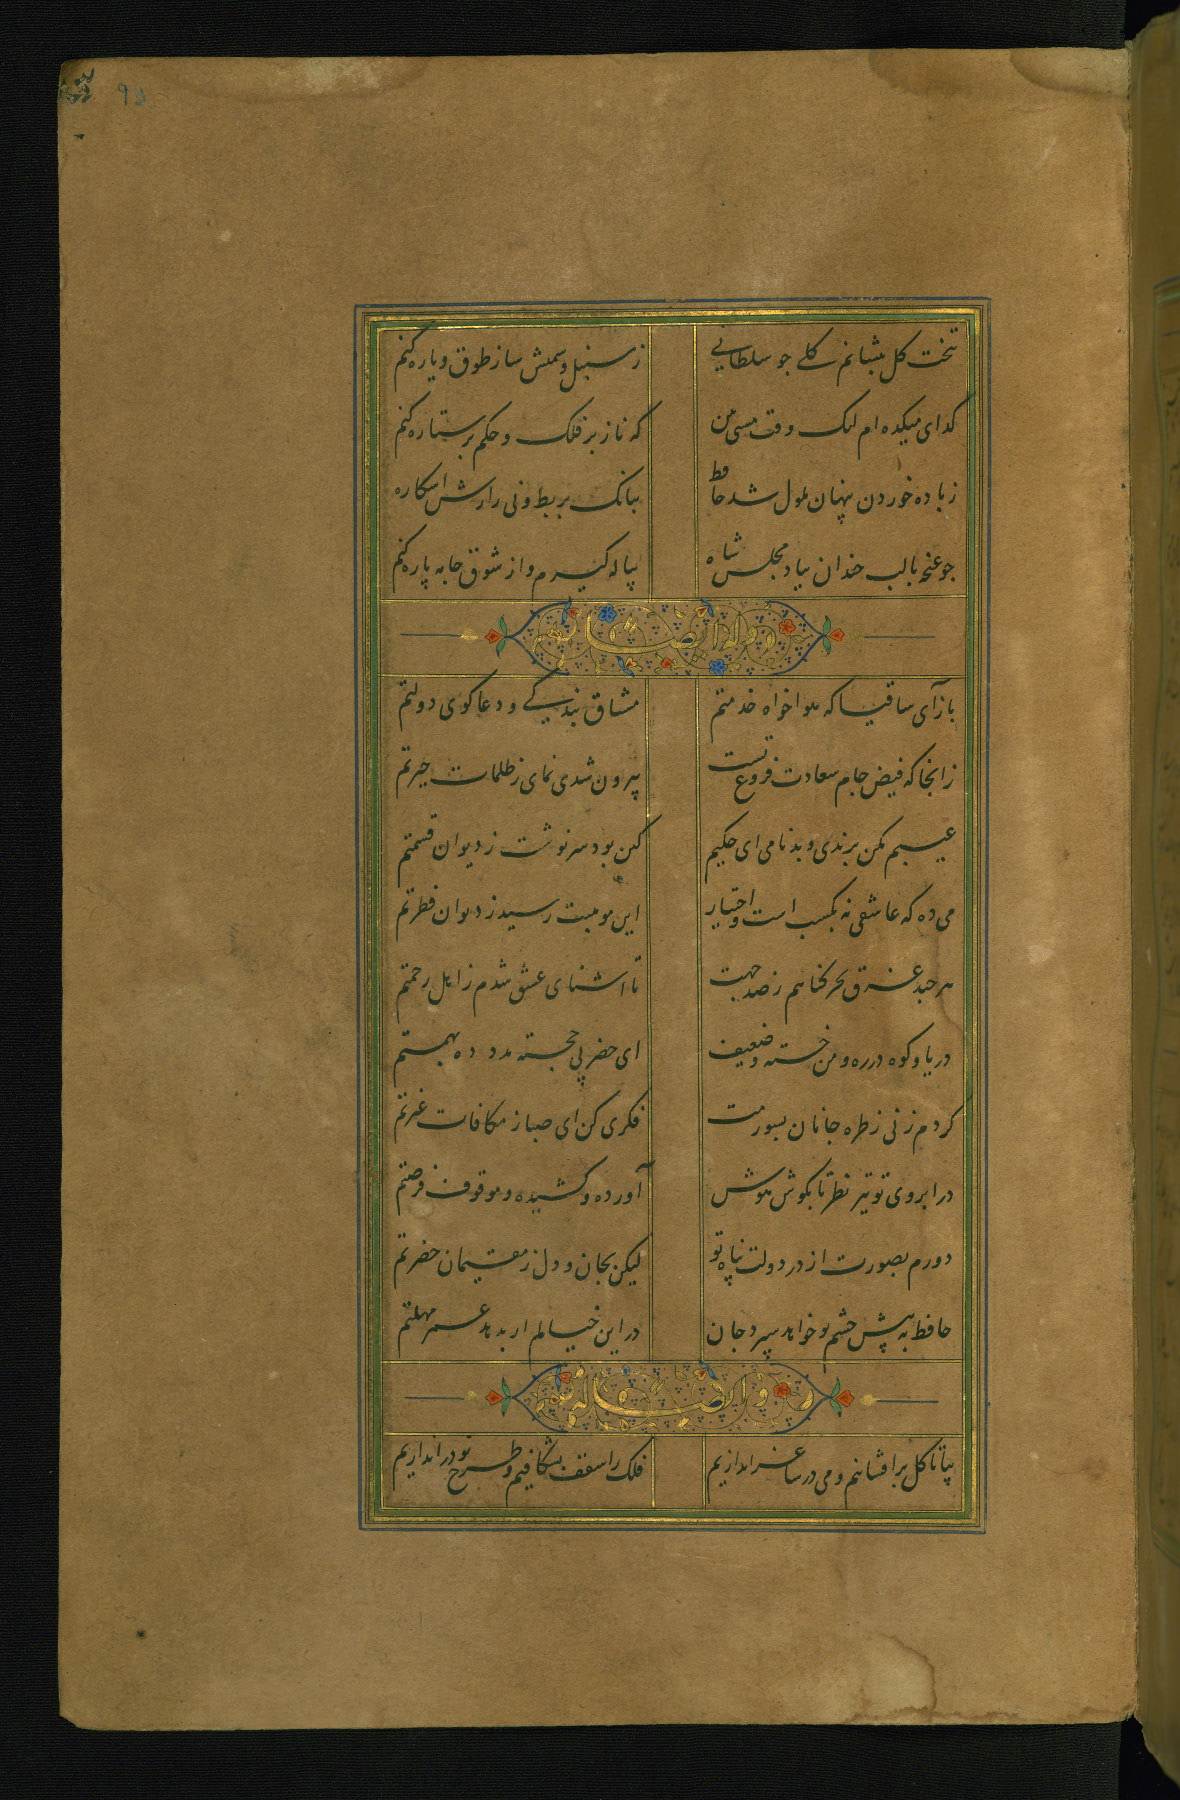 ۹۵
بتخت کل بنشانم کلے جو سلطانی
ز سنبل و سمنش ساز طوق و یاره کنم
کدای میکده ام لیک وقت مستی من
که ناز بر فلک و حکم بر ستاره کنم
ز باده خوردن پنهان ملول شد حافظ
ببانک بربط و نی رازش اشکاره
جو غنجه بالب خندان بیاد مجلس شاه
پیاله کیرم و از شوق جامه پاره کنم
وله ایضا
بازآی ساقیا که هواخواه خدمتم
مشتاق بندکے و دعاکوی دولتم
زانجا که فیض جام سعادت فروغ تست
بیرون شدی نمای ز ظلمات حیرتم
عیبم مکن برندی و بدنامی ای حکیم
کین بود سرنوشت ز دیوان قسمتم
می ده که عاشقی نه بکسب است و اختیار
این موهبت رسید ز دیوان فطرتم
هر جند غرق بحر کناهم ز صد جهت
تا اشنای عشق شدم ز اهل رحمتم
دریا و کوه در ره و من خسته و ضعیف
ای خضر پی خجسته مدد ده بهمتم
کردم زنی ز طره جانان بسوزمت
فکری کن ای صبا ز مکافات غیرتم
در ابروی تو تیر نظر تا بکوش هوش
آورده و کشیده و موقوف فرصتم
دورم بصورت از در دولت پناه تو
لیکن بجان و دل ز مقیمان حضرتم
حافظ به پیش جشم تو خواهد سپرد جان
در این خیالم ار بدهد عمر مهلتم
وله ایضا
بیا تا کل برافشانیم و می در ساغر اندازیم
فلک را سقف بشکافیم و طرح نو در اندازیم